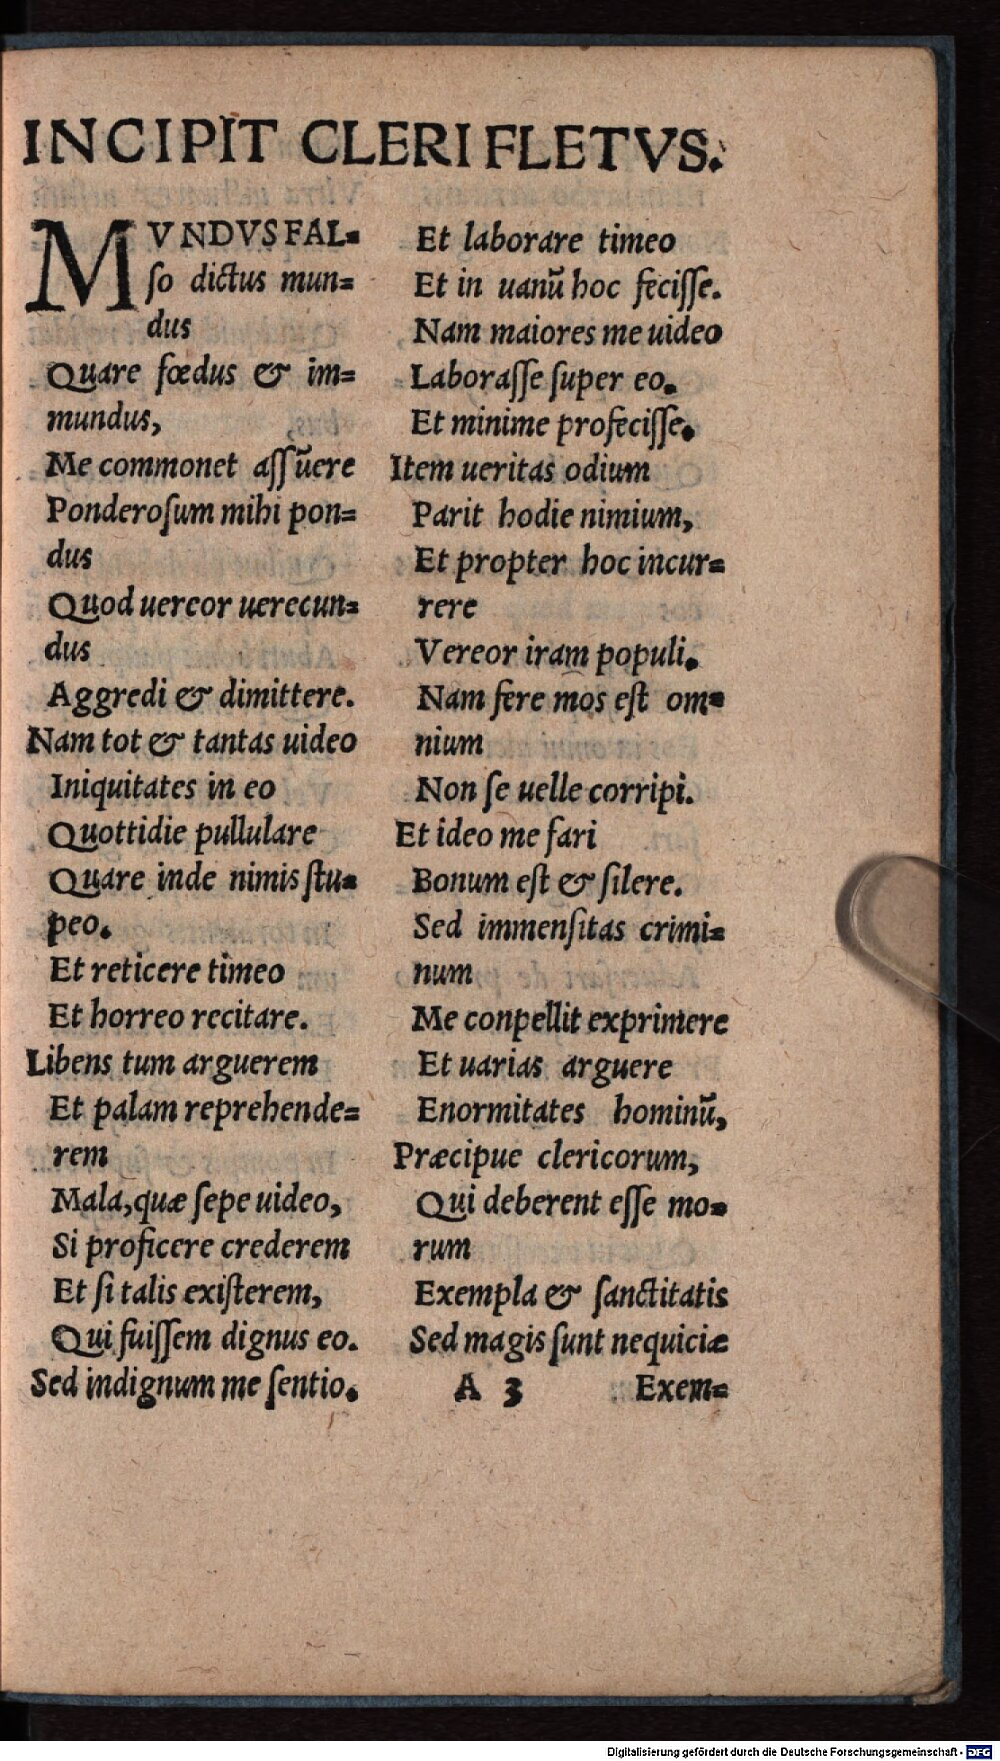 INCIPIT CLERI FLETVS.
MVNDVS FAL=
ſo dictus mun=
dus
Quare fœdus & im=
mundus,
Me commonet aſſũere
Ponderoſum mihi pon=
dus
Quod uereor uerecun=
dus
Aggredi & dimittere.
Nam tot & tantas uideo
Iniquitates in eo
Quottidie pullulare
Quare inde nimis ſtu=
peo.
Et reticere timeo
Et horreo recitare.
Libens tum arguerem
Et palam reprehende=
rem
Mala, quæ ſepe uideo,
Si proficere crederem
Et ſi talis exiſterem,
Qui fuiſſem dignus eo.
Sed indignum me ſentio.
Et laborare timeo
Et in uanũ hoc feciſſe.
Nam maiores me uideo
Laboraſſe ſuper eo.
Et minime profeciſſe.
Item ueritas odium
Parit hodie nimium,
Et propter hoc incur=
rere
Vereor iram populi.
Nam fere mos eſt om=
nium
Non ſe uelle corripi.
Et ideo me fari
Bonum eſt & ſilere.
Sed immenſitas crimi=
num
Me conpellit exprimere
Et uarias arguere
Enormitates hominũ,
Præcipue clericorum,
Qui deberent eſſe mo=
rum
Exempla & ſanctitatis
Sed magis ſunt nequiciæ
A 3 Exem=
Digitalisierung gefördert durch die Deutsche Forschungsgemeinschaft - DFG